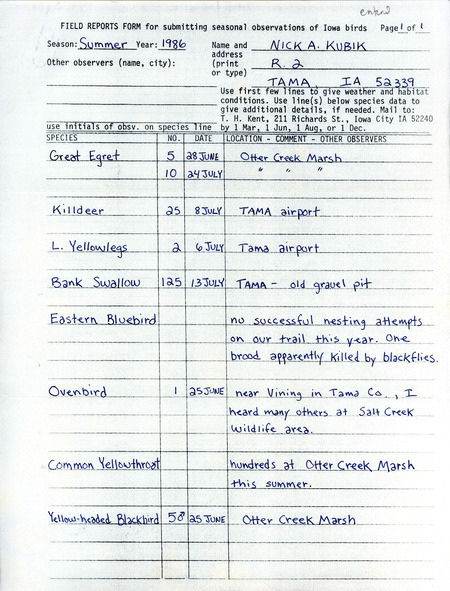 entered
FIELD REPORTS FORM for submitting seasonal observations of Iowa birds Page 1 of 1
Season: Summer Year: 1986 Name and NICK A. KUBIK
Other observers (name, city): address
(print R. 2
or type)
TAMA IA 52339
Use first few lines to give weather and habitat
conditions. Use line(s) below species data to
give additional details, if needed. Mail to:
T. H. Kent, 211 Richards St., Iowa City IA 52240
use initials of obsv. on species line by 1 Mar, 1 Jun, 1 Aug, or 1 Dec.
SPECIES NO. DATE LOCATION - COMMENT - OTHER OBSERVERS
Great Egret 5 28 JUNE Otter Creek Marsh
10 24 JULY " " "
Killdeer 25 8 JULY TAMA airport
L. Yellowlegs 2 6 JULY Tama airport
Bank Swallow 125 13 JULY TAMA - old gravel pit
Eastern Bluebird no successful nesting attempts
on our trail this year. One
brood apparently killed by blackflies.
Ovenbird 1 25 JUNE near Vining in Tama Co., I
heard many others at Salt Creek
Wildlife area.
Common Yellowthroat hundreds at Otter Creek Marsh
this summer.
Yellow-headed Blackbird 58 25 JUNE Otter Creek Marsh